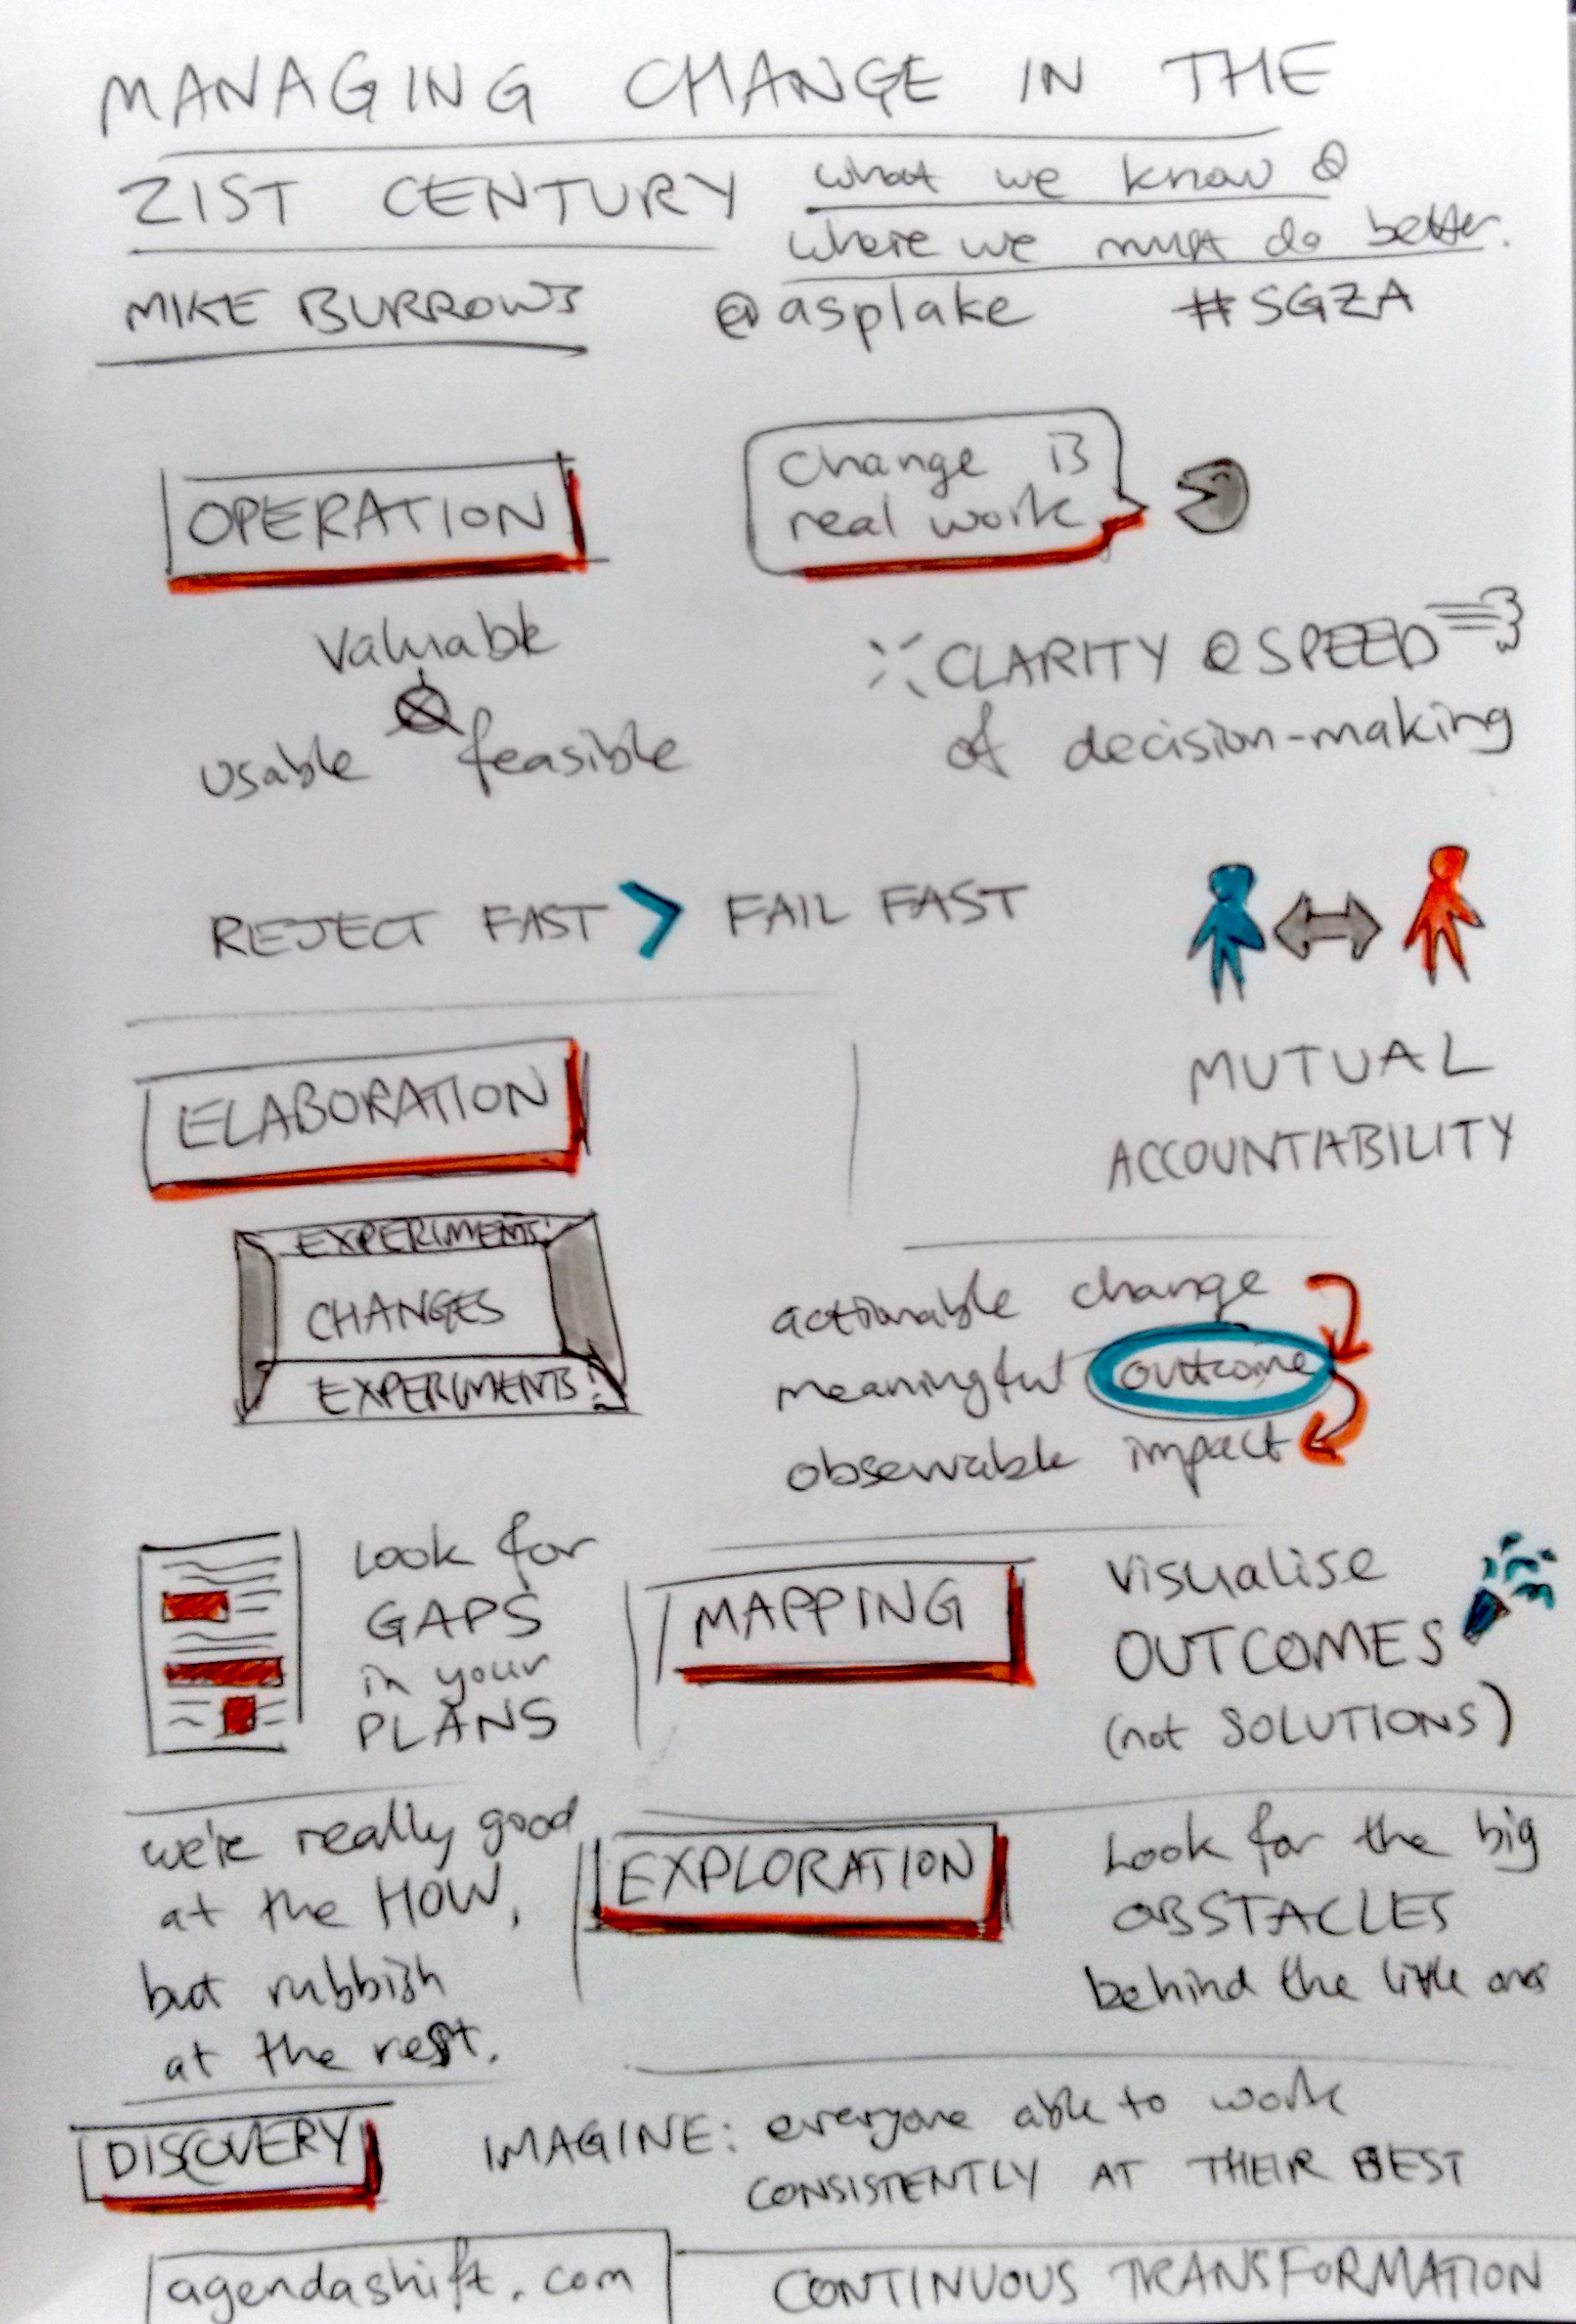 MANAGING CHANGE IN THE
21ST CENTURY
what we know &
where we must do better.
MIKE BURROWS @asplake #SGZA
OPERATION
Change is
real work
valuable
usable feasible
CLARITY & SPEED
of decision-making
REJECT FAST > FAIL FAST
MUTUAL
ACCOUNTABILITY
ELABORATION
EXPERIMENTS!
CHANGES
EXPERIMENTS?
actionable change
meaningful outcome
observable impact
Look for
GAPS
in your
PLANS
MAPPING
visualise
OUTCOMES
(not SOLUTIONS)
we're really good
at the HOW,
but rubbish
at the rest.
EXPLORATION
Look for the big
OBSTACLES
behind the little ones
DISCOVERY
IMAGINE: everyone able to work
CONSISTENTLY AT THEIR BEST
agendashift.com
CONTINUOUS TRANSFORMATION